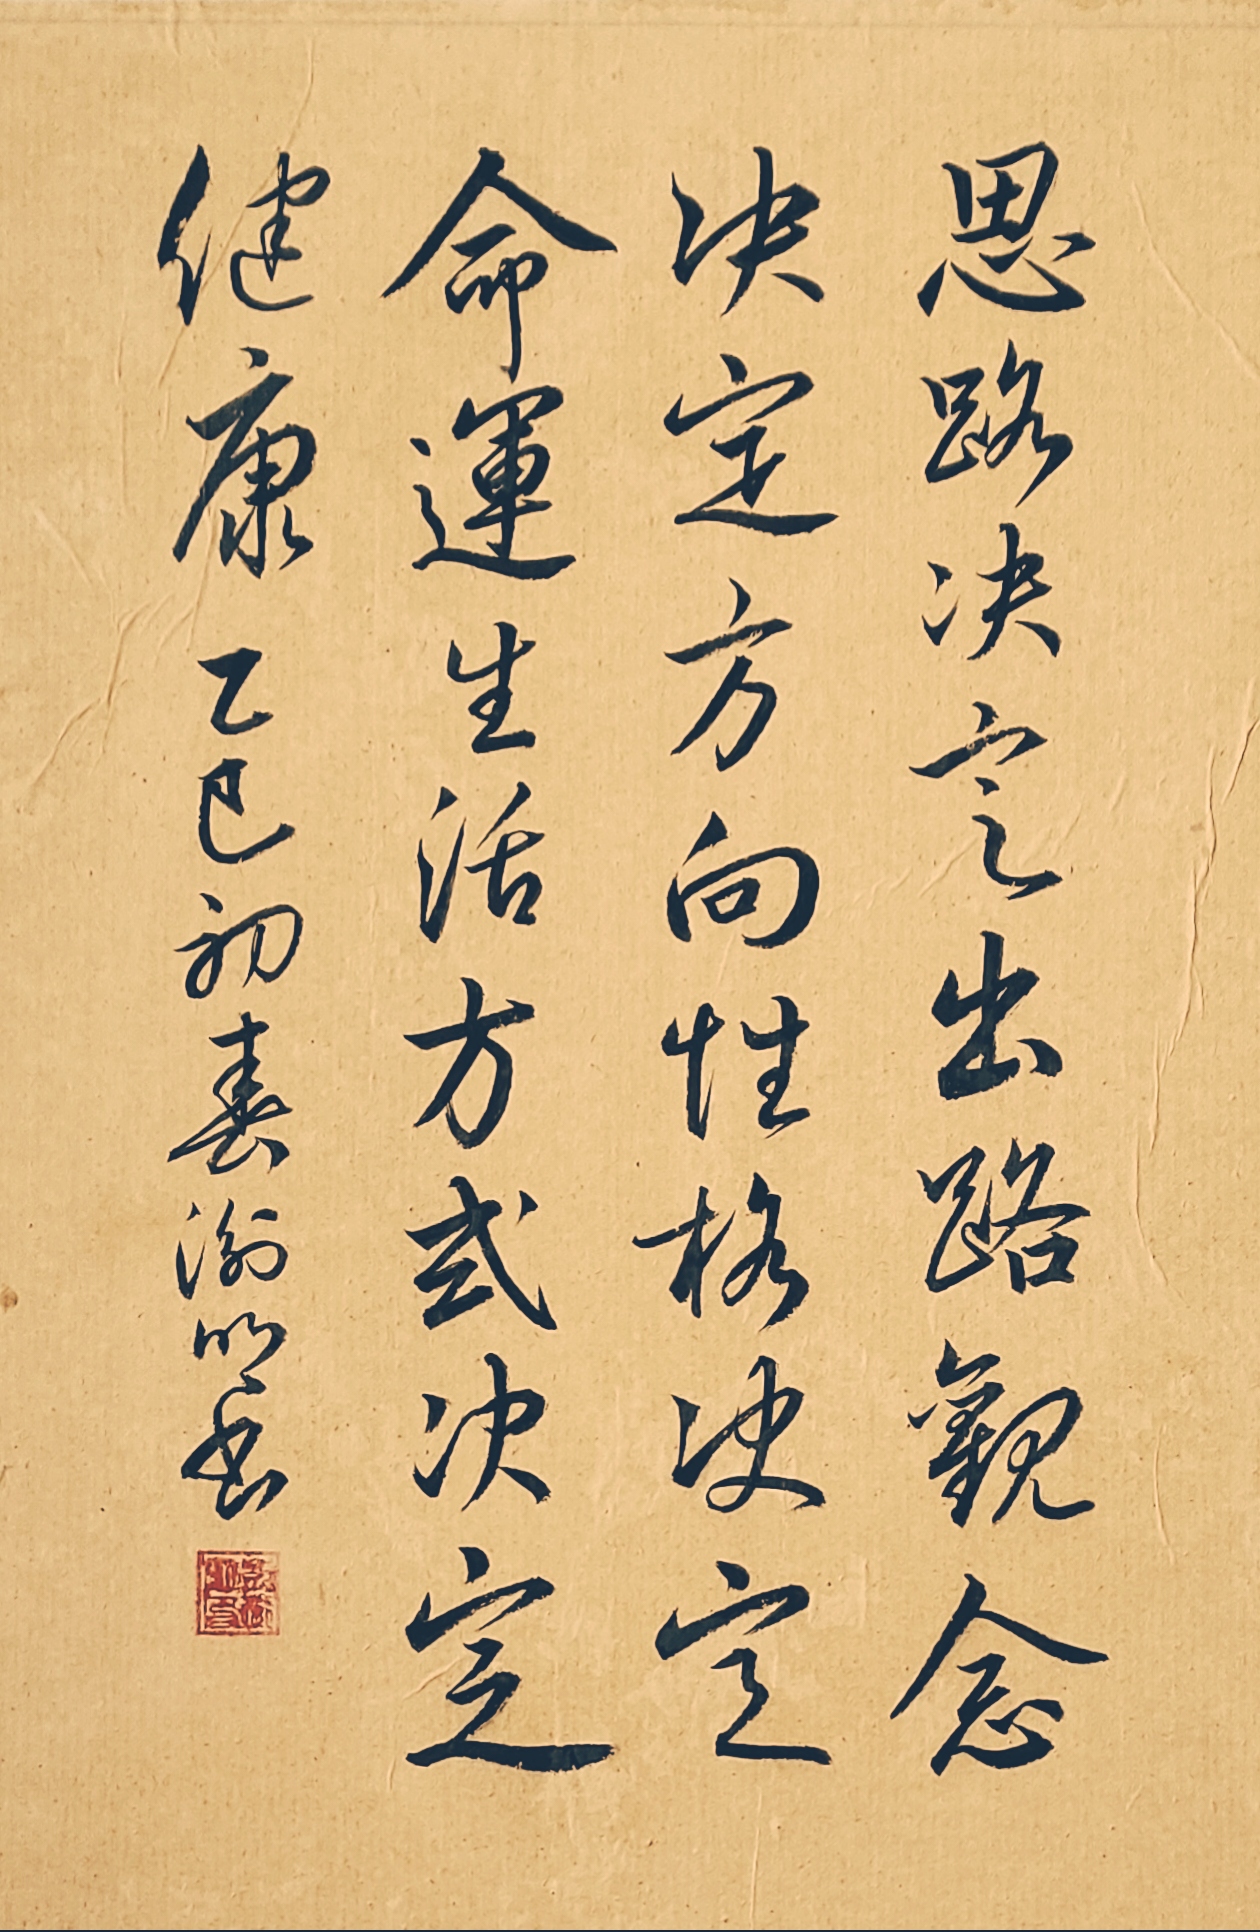 思路决定出路觀念
决定方向性格决定
命運生活方式决定
健康 乙巳初春 明書